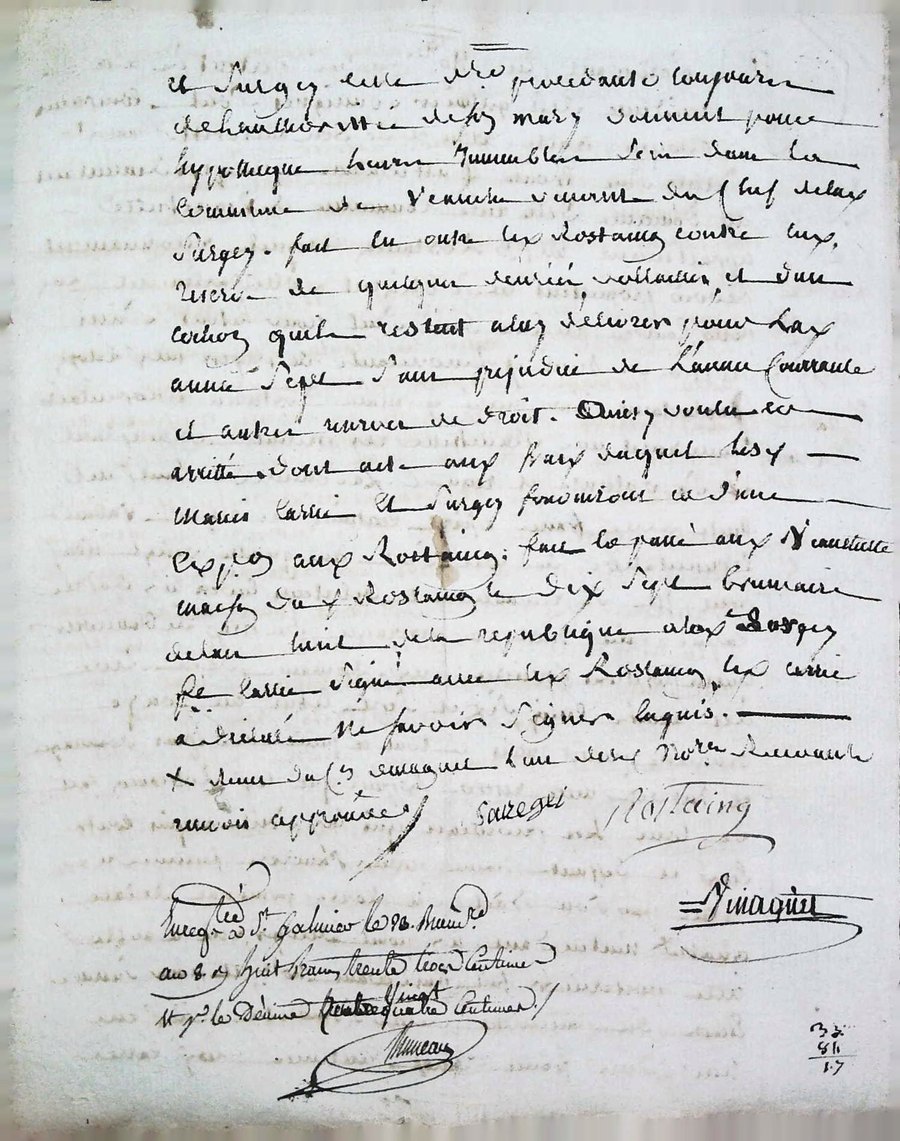 et Surgey cette d.re procedante toujours
de Lhauthorittée de son mary donnent pour
hypotheque leurs Immeubles Scis dans la
Commune de venants du Chef de lad
Surgey. fait en outre led Rostaing contre eux,
reserve de quelques denrées, vollailles, et d'un
cochon quils restent a luy délivrer pour Lad
année Sept Sans prejudice de L'année Courrante
et autres reserves de droit. Ainsy voulu et
arritté. dont acte aux fraix duquel lesd
mariés Carrié et Surgey fourniront et d'une
Exp.on aux Rostaing. fait et passé aux
maison dud Rostaing le dix Sept brumaire
de lan huit de la republique a lad Surgey
fe Carrié Signé avec led Rostaing led carrié
a déclaré ne Savoir Signer Enquis.
X lun desd No.res Recevants
renvois approuvée
Saregei Rostaing
Enreg.tré a St Galmier le 23. Brum.re
an 8 Huit francs trente trois Centimes
et p.r le Décime quatre Vingt quatre Centimes
33
84
17